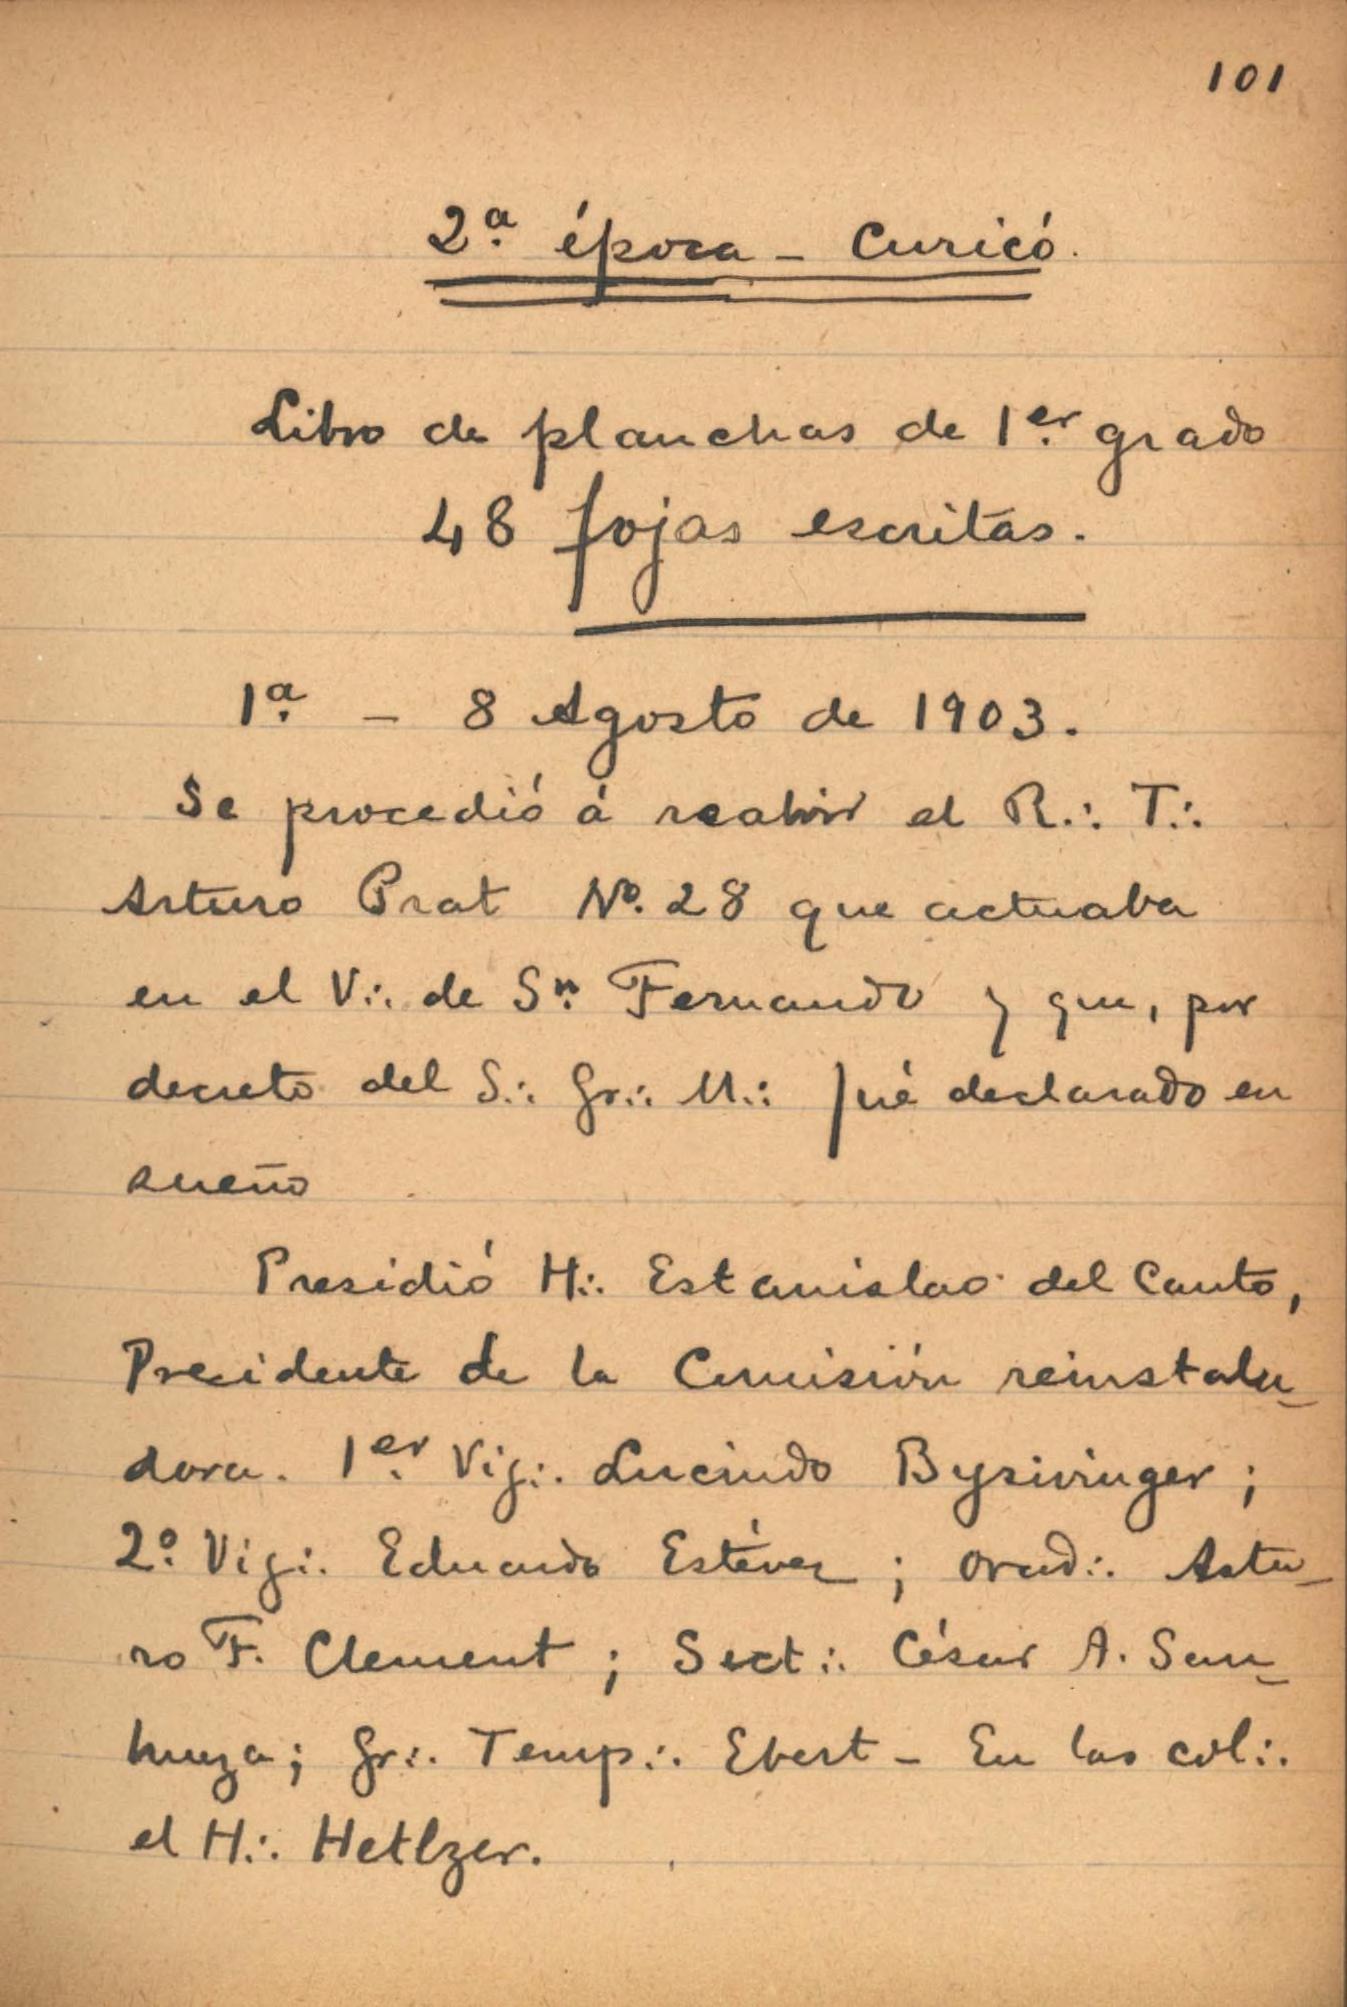 101
2ª. época - Curicó.
Libro de planchas de 1er. grado
48 fojas escritas.
1ª. - 8 Agosto de 1903.
Se procedió á reabrir el R∴ T∴
Arturo Prat Nº. 28 que actuaba
en el V∴ de Sn. Fernando y que, por
decreto del S∴ Gr∴ M∴ fué declarado en
sueño
Presidió H∴ Estanislao del Canto,
Presidente de la Comisión reinstala-
dora. 1er. Vig∴ Lucindo Bysivinger;
2º. Vig∴ Eduardo Estévez; Orad∴ Artu-
ro F. Clement; Sect∴ César A. San-
hueza; Gr∴ Temp∴ Ebert - En las col∴
el H∴ Hetlzer.